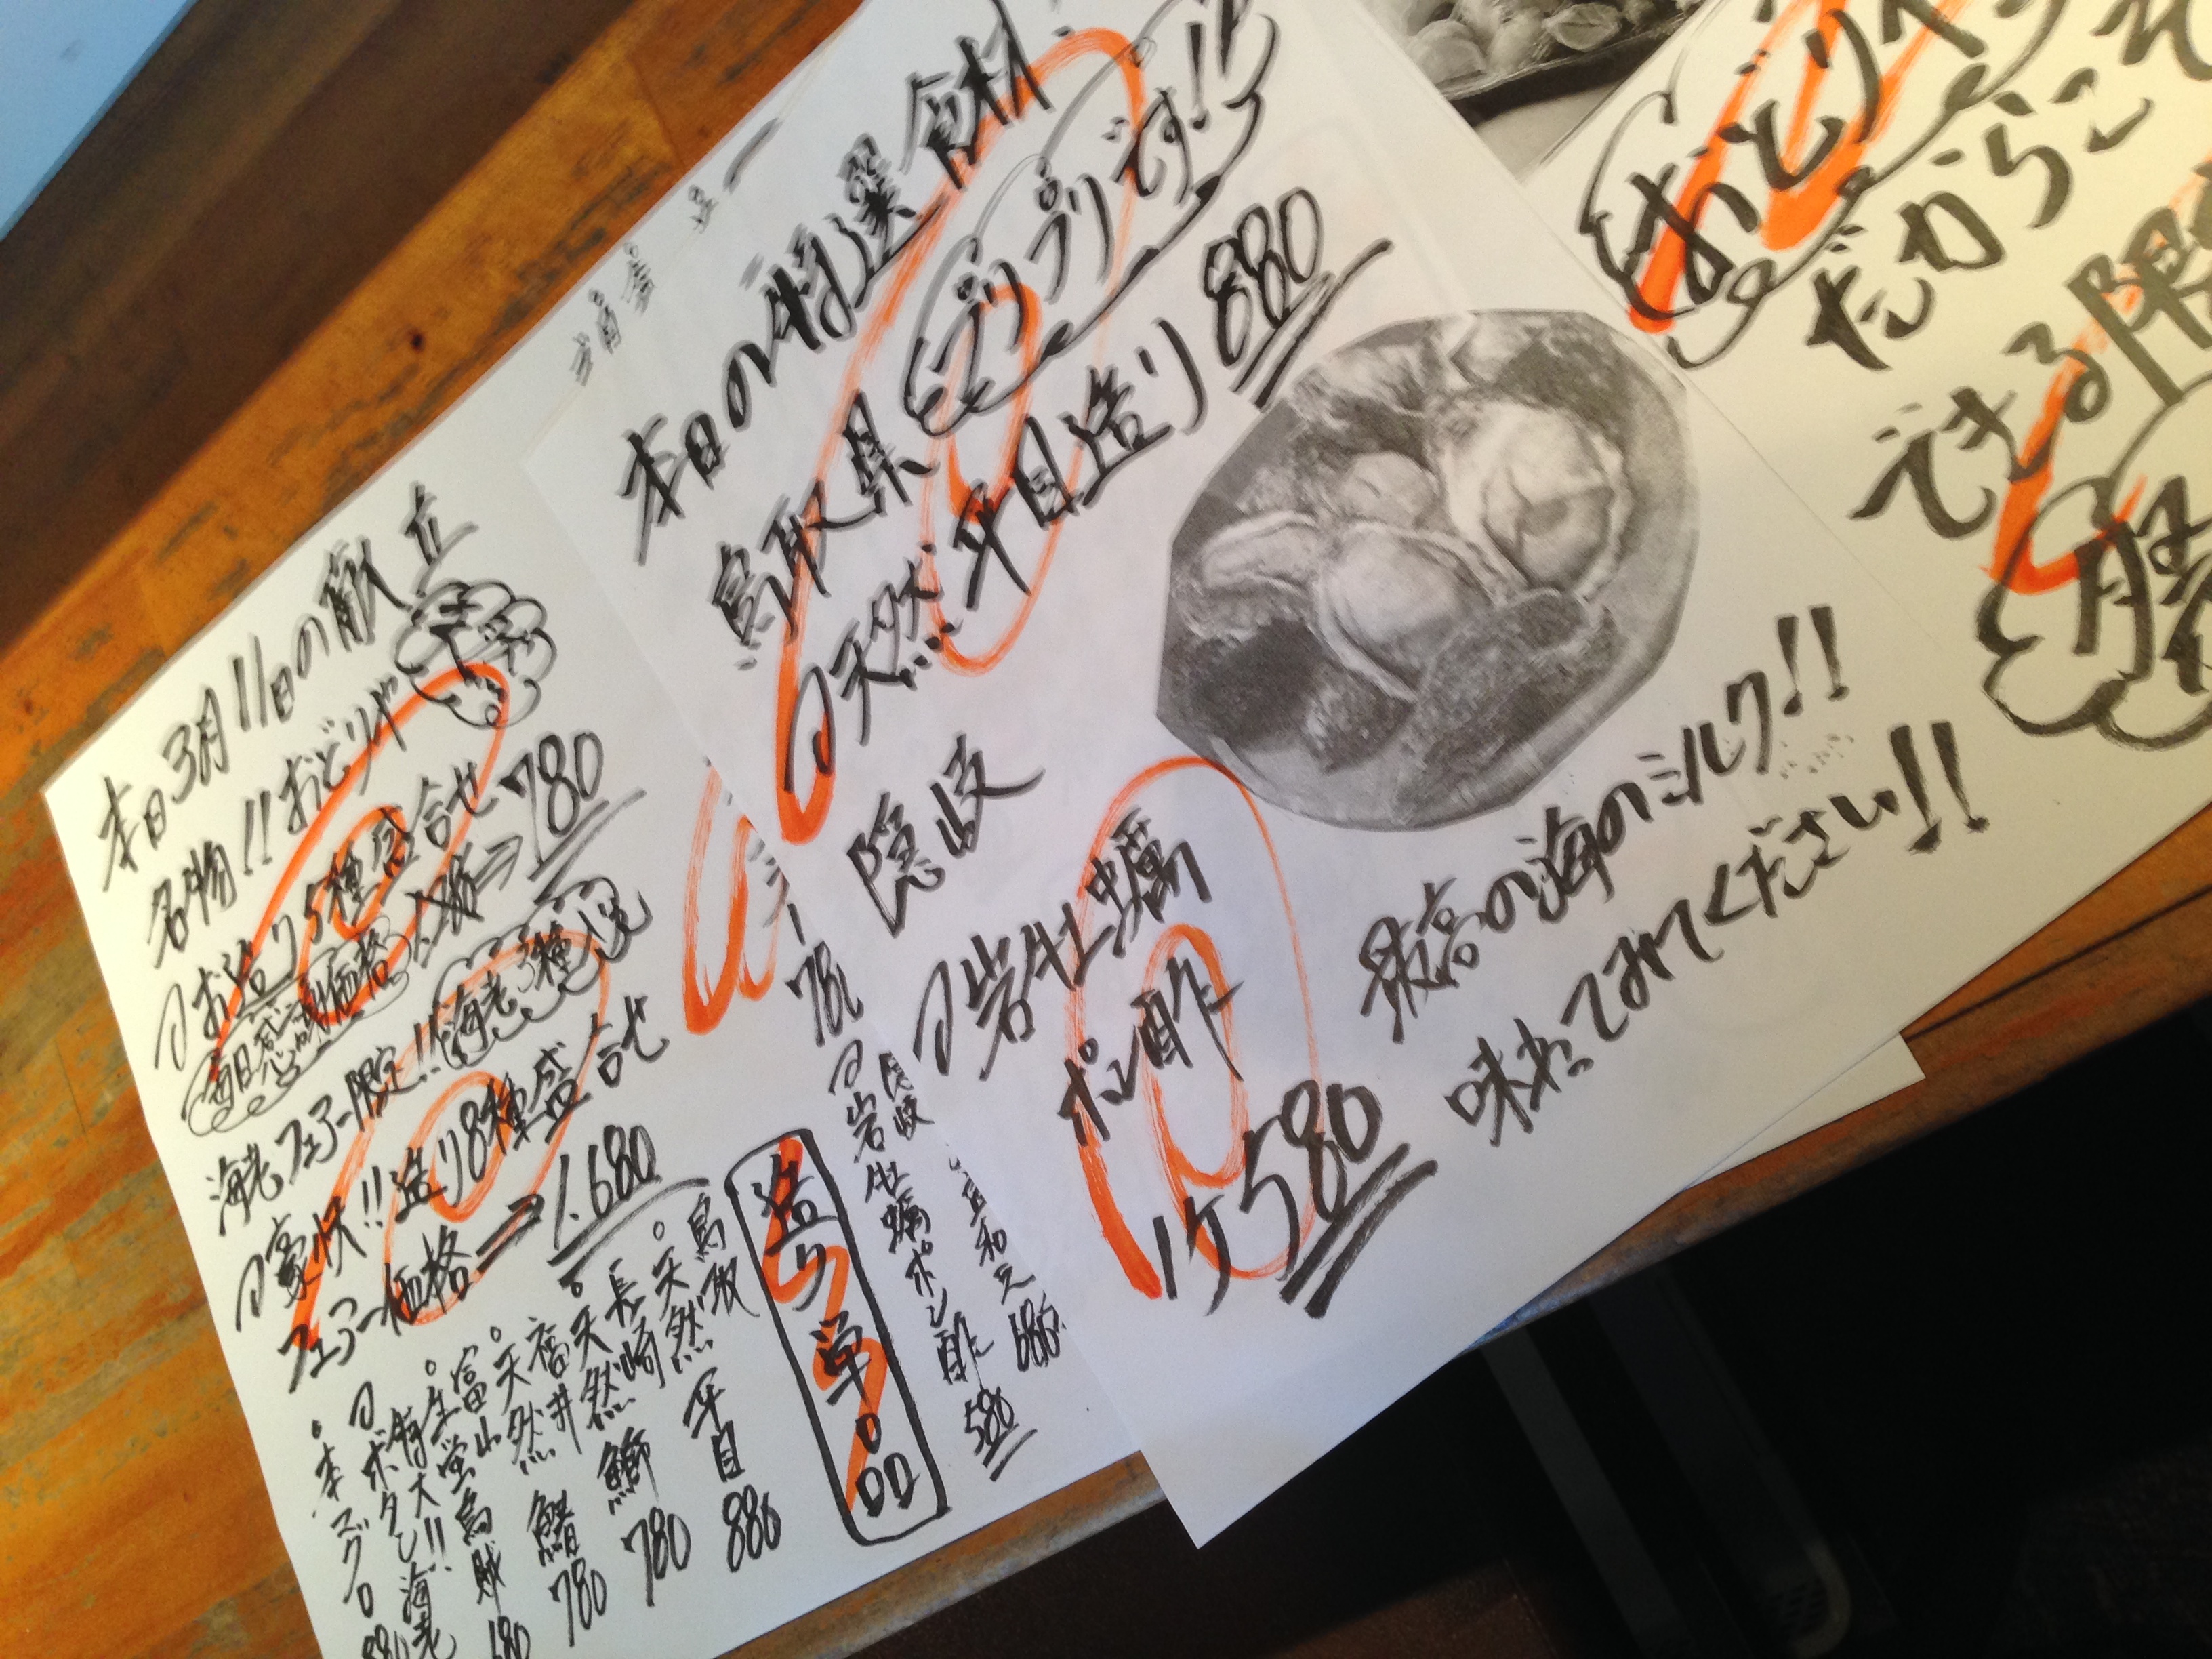 本日3月11日の献立
名物!!おどりや
お造り5種盛合せ
毎日感謝価格
人前⇒780
海老フェアー限定!!海老3種
豪快!!造り8種盛合せ
フェアー価格⇒1.680
造り単品
鳥取
天然 平目 880
長崎
天然 鰤 780
福井
天然 鰆 780
富山
生蛍烏賊 680
特大!!
ボタン海老
本マグロ 880
隠岐
岩牡蠣ポン酢 580
本日の特選食材
鳥取県
プリプリです!!
天然平目造り 880
隠岐
岩牡蠣
ポン酢
1ケ580
最高の海のミルク!!
味わってみてください!!
おどりや
だからこそ
できる限